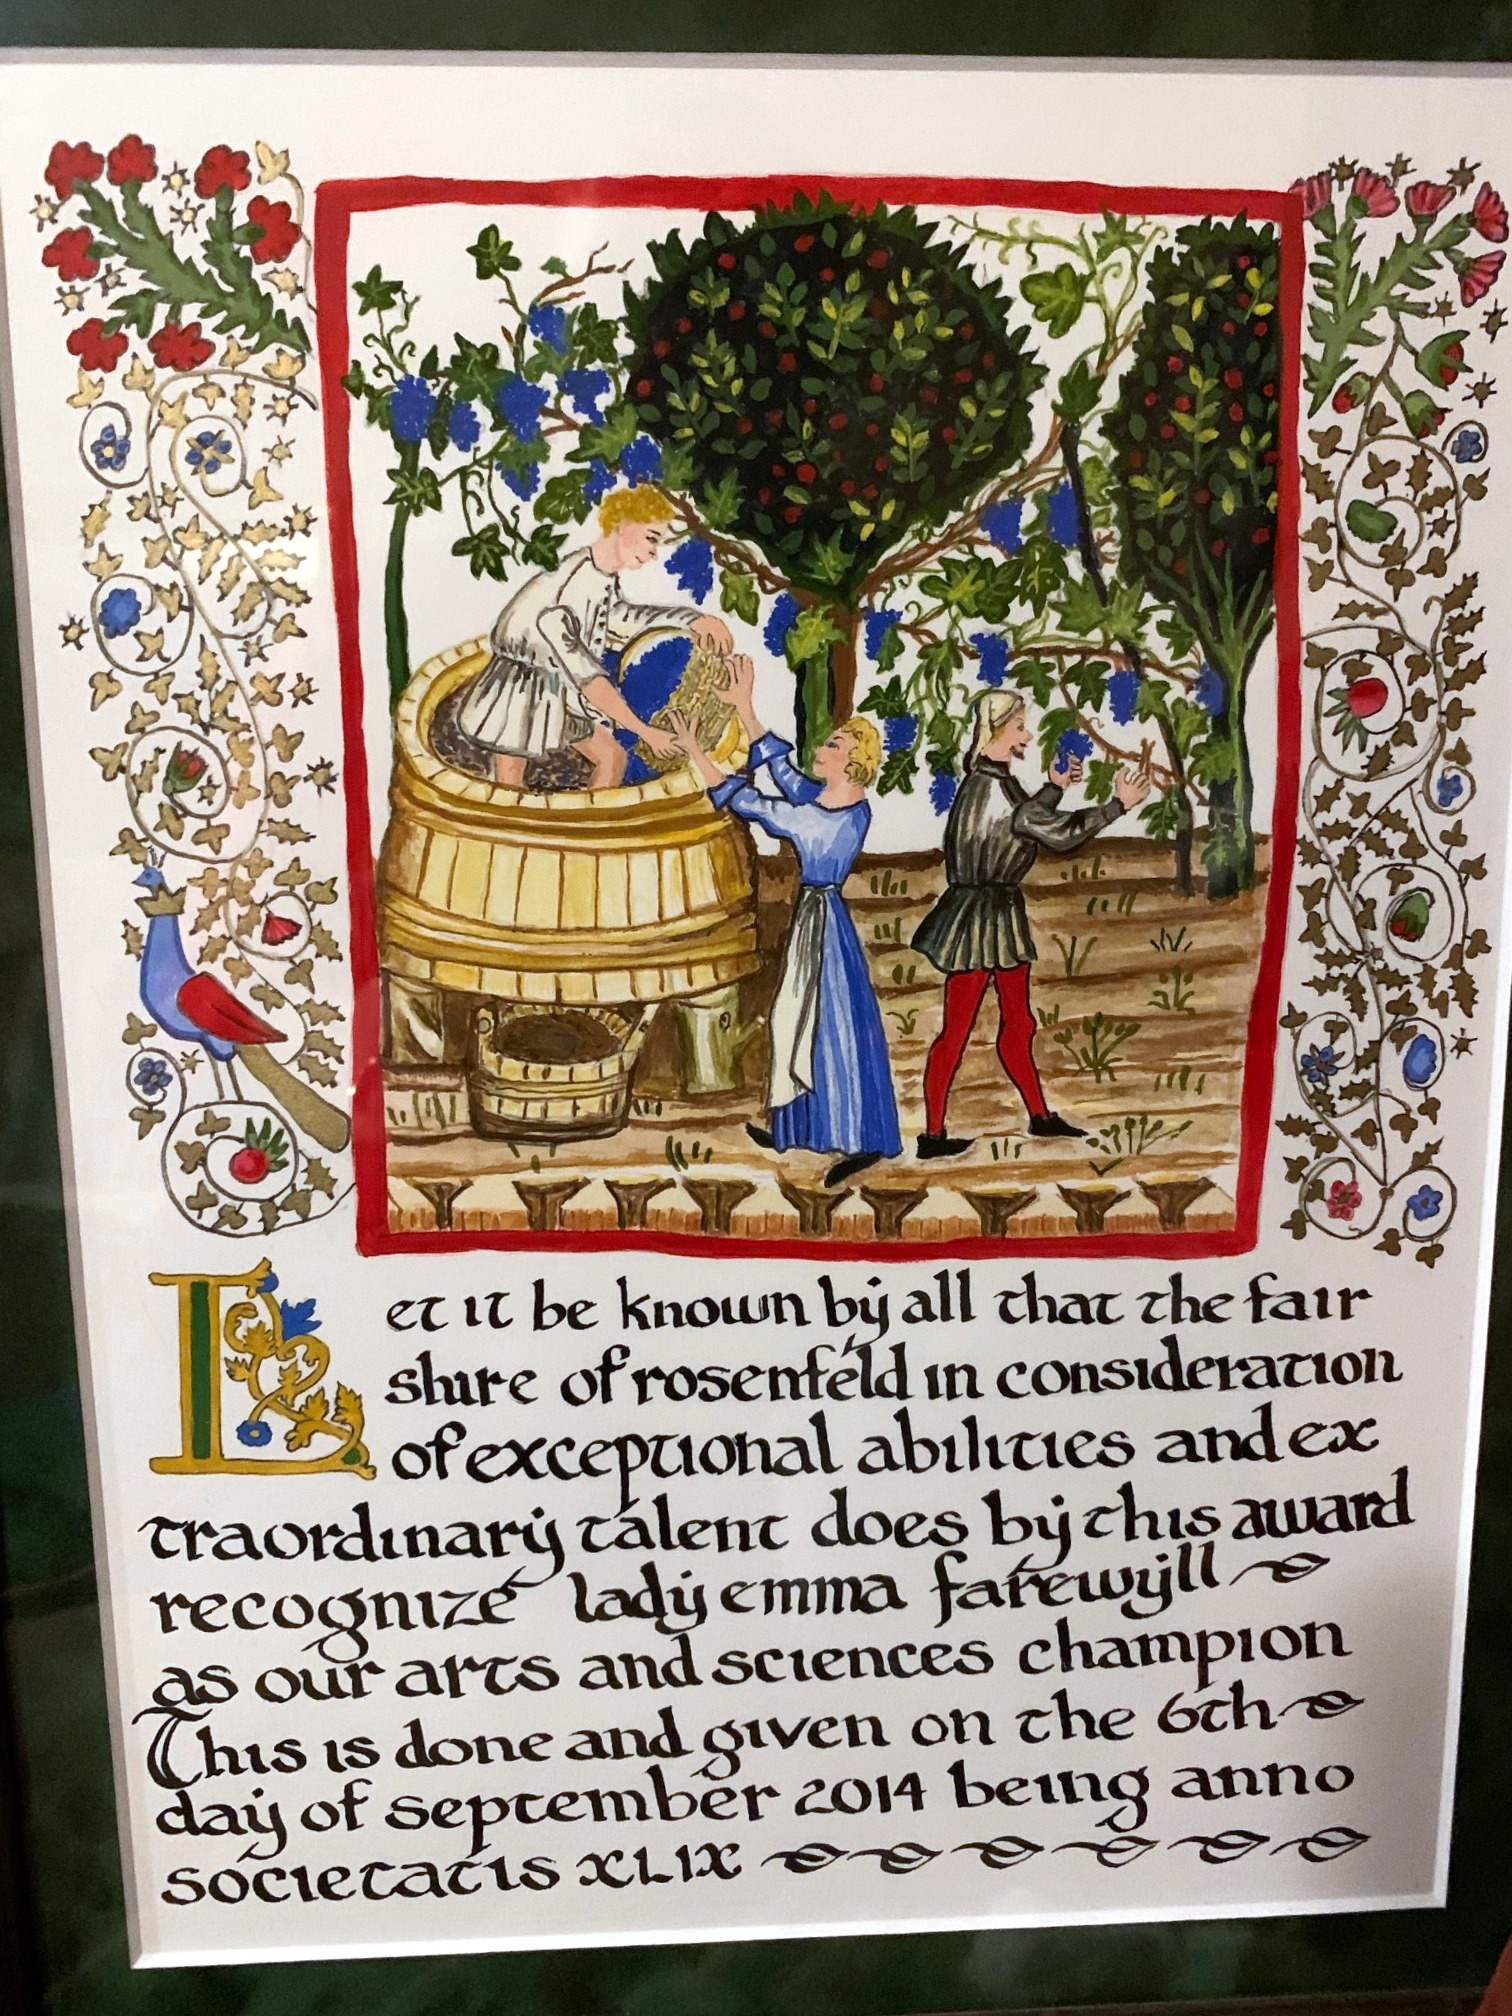 Let it be known by all that the fair
shire of rosenfeld in consideration
of exceptional abilities and ex
traordinary talent does by this award
recognize lady emma farewyll
as our arts and sciences champion
This is done and given on the 6th
day of september 2014 being anno
societatis XLIX